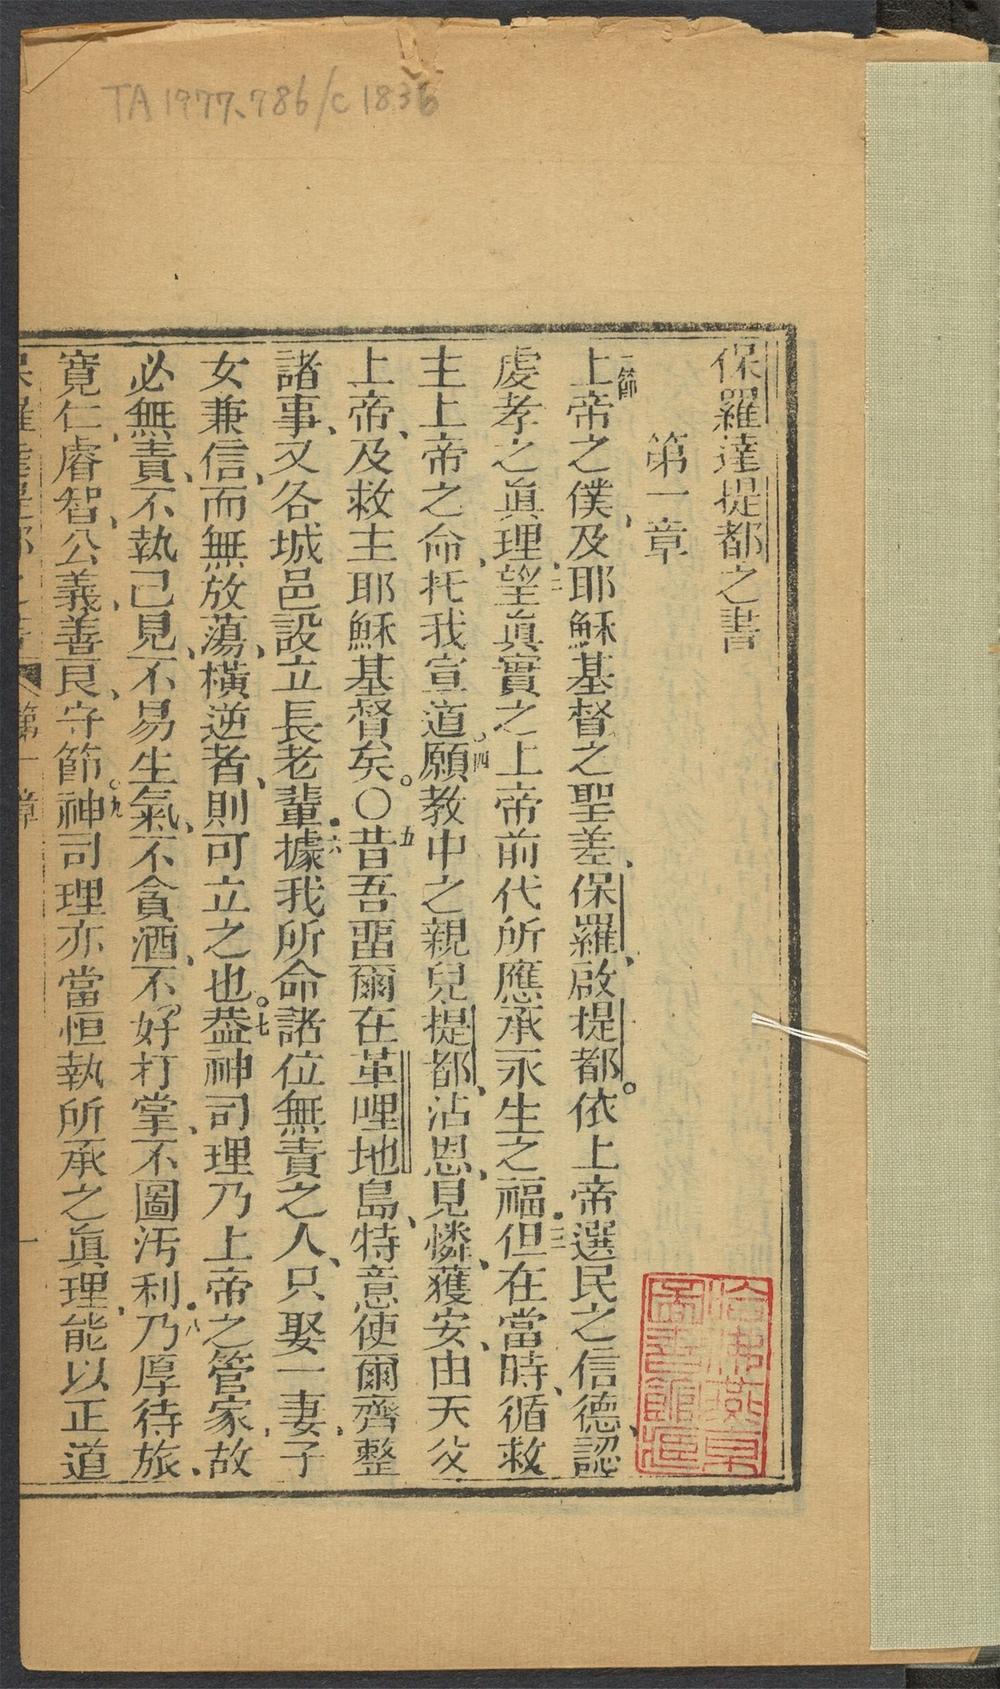 TA 1977.786/C1836
保羅達提都之書
第一章
一節
上帝之僕、及耶穌基督之聖差、保羅、啟提都。依上帝選民之信德、認
虔孝之眞理、二望眞實之上帝前代所應承永生之福、三但在當時、循救
主上帝之命、托我宣道。四願教中之親兒提都、沾恩、見憐、獲安、由天父
上帝、及救主耶穌基督矣。〇五昔吾畱爾在革哩地島、特意使爾齊整
諸事、又各城邑設立長老輩、六據我所命諸位無責之人、只娶一妻、子
女兼信、而無放蕩、橫逆者、則可立之也。七葢神司理乃上帝之管家、故
必無責、不執己見、不易生氣、不貪酒、不好打掌、不圖汚利、八乃厚待旅、
寬仁、睿智、公義、善良、守節。九神司理亦當恒執所承之眞理、能以正道
保羅達提都之書 第一章 一
哈佛燕京
圖書館藏